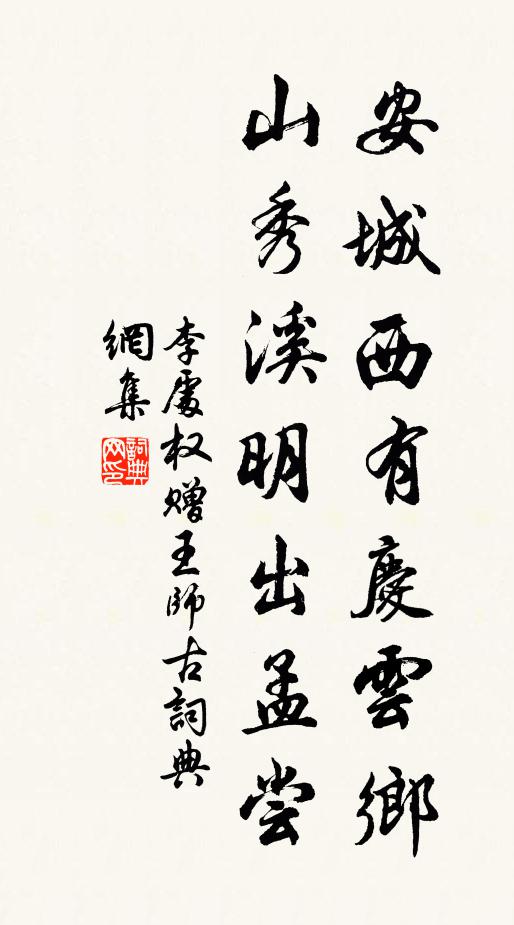 安城西有慶雲鄉
山秀溪明出孟尝
李處权赠王師古詞典
網集
詞典网印